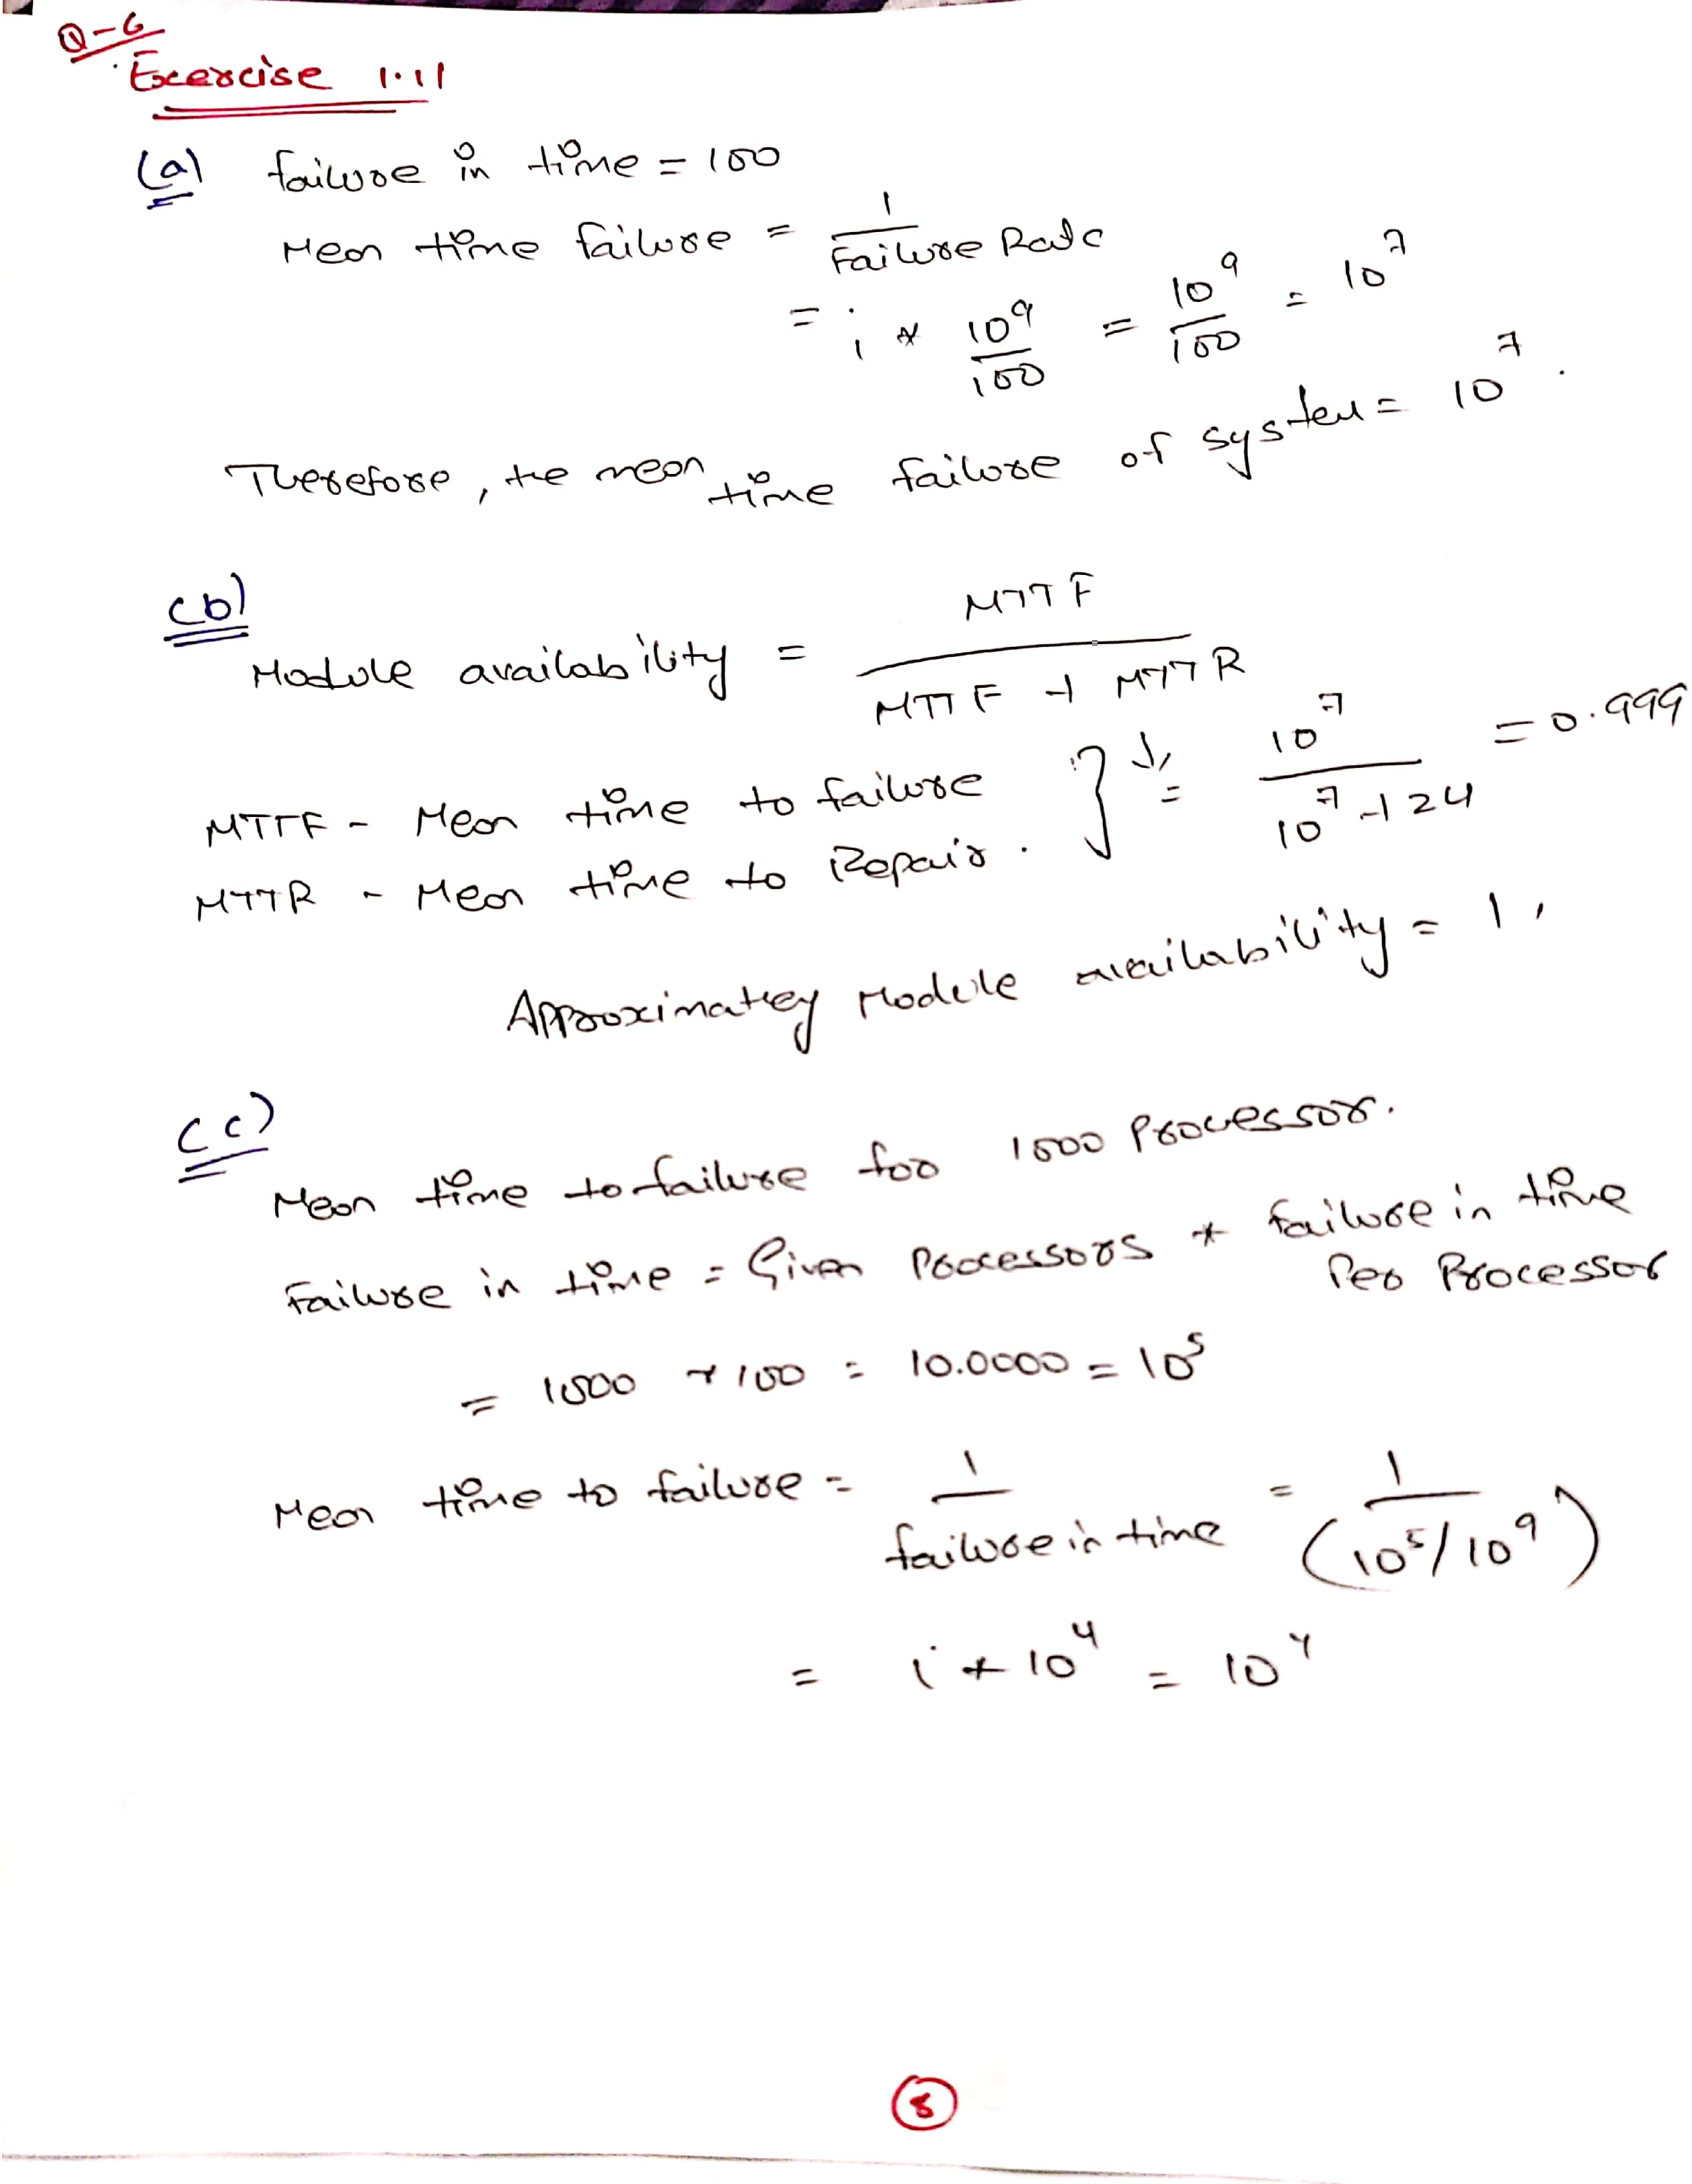 Q-6
Excercise 1.11
(a) failure in time = 100
Mean time failure = 1 / Failure Rate
= 1 * 10^9 / 100 = 10^9 / 100 = 10^7
Therefore, the mean time failure of system = 10^7.
(b)
Module availability = MTTF / MTTF + MTTR
MTTF - Mean time to failure
MTTR - Mean time to Repair. } = 10^7 / 10^7 + 24 = 0.999
Approximatley Module availability = 1,
(c)
Mean time to failure for 1000 Processor.
Failure in time = Given Processors * failure in time Per Processor
= 1000 * 100 = 10.0000 = 10^5
Mean time to failure = 1 / failure in time = 1 / (10^5/10^9)
= 1 * 10^4 = 10^4
8